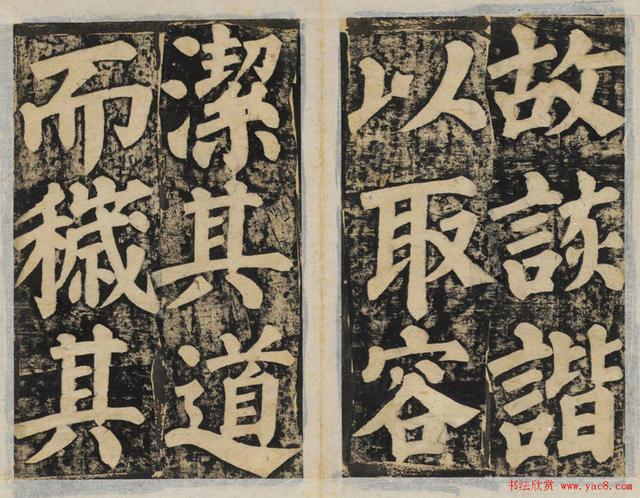 故詼諧
以取容
潔其道
而穢其
书法欣赏 www.yac8.com